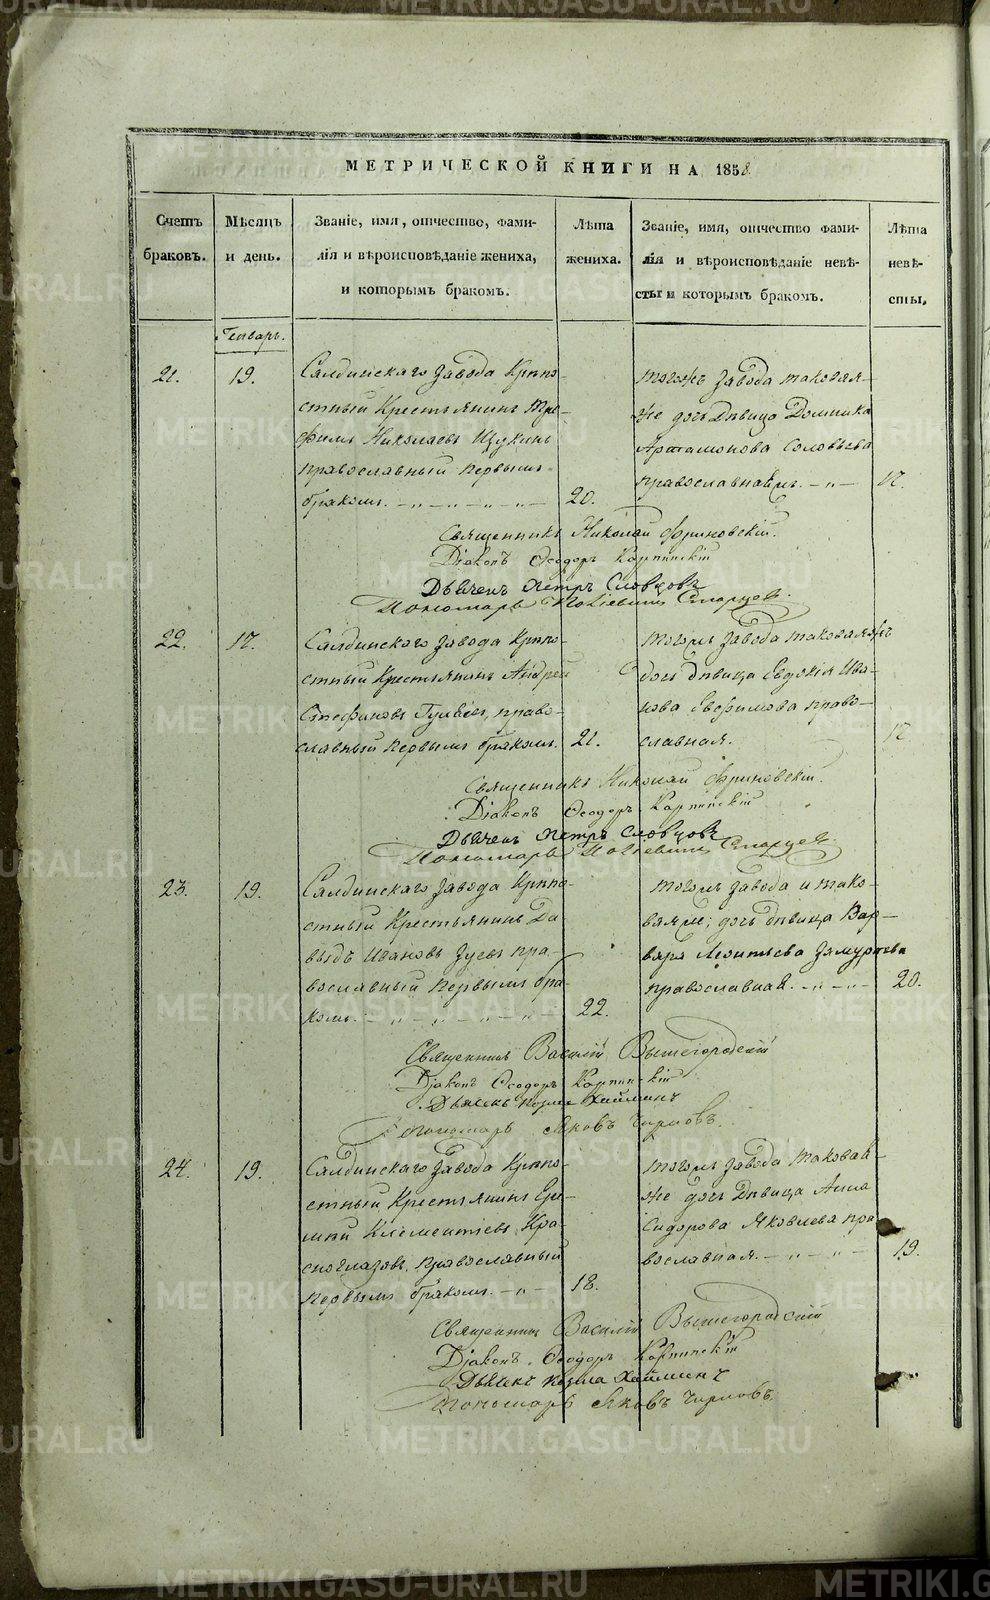 МЕТРИЧЕСКОЙ КНИГИ НА 1858.
Счетъ браковъ.
Мѣсяцъ и день.
Званіе, имя, отчество, фами-
лія и вѣроисповѣданіе жениха,
и которымъ бракомъ.
Лѣта жениха.
Званіе, имя, отчество фами-
лія и вѣроисповѣданіе невѣ-
сты и которымъ бракомъ.
Лѣта невѣ-
сты.
Генварь.
21. 19.
Салдинскаго завода Крѣпо-
стный Крестьянинъ Тро-
фимъ Николаевъ Щукинъ
православный первымъ
бракомъ. 20.
тогожъ завода таковая
же дочь Дѣвица Домника
Артамонова Соловьева
православная. 17.
Священникъ Николай
Діаконъ Ѳеодоръ Карпинскій
Дьячекъ Петръ Словцовъ
Пономарь Старцев
22. 17.
Салдинскаго завода Крѣпо-
стный Крестьянинъ Андрей
Стефановъ право-
славный первымъ бракомъ. 21.
тогожъ завода таковаяжъ
дочь дѣвица Евдокія Ива-
нова Евфимова право-
славная. 17
Священникъ Николай
Діаконъ Ѳеодоръ Карпинскій
Дьячекъ Петръ Словцовъ
Пономарь Старцев
23. 19.
Салдинскаго завода Крѣпо-
стный Крестьянинъ Да-
выдъ Ивановъ Зуевъ пра-
вославный первымъ бра-
комъ. 22.
тогожъ завода и тако-
ваяже, дочь дѣвица Вар-
вара Леонтьева Замураева
православная. 20.
Священникъ Василій Вышегородскій
Діаконъ Ѳеодоръ Карпинскій
Дьячекъ Козма
Пономарь Яковъ Чирковъ.
24. 19.
Салдинскаго завода Крѣпо-
стный Крестьянинъ Ере-
мѣй Клементіевъ Кра-
сноглазовъ, православный
первымъ бракомъ. 18.
тогожъ завода таковая
же дочь Дѣвица Анна
Сидорова Яковлева пра-
вославная. 19.
Священникъ Василій Вышегородскій
Діаконъ Ѳеодоръ Карпинскій
Дьячекъ Козма
Пономарь Яковъ Чирковъ.
METRIKI.GASO-URAL.RU